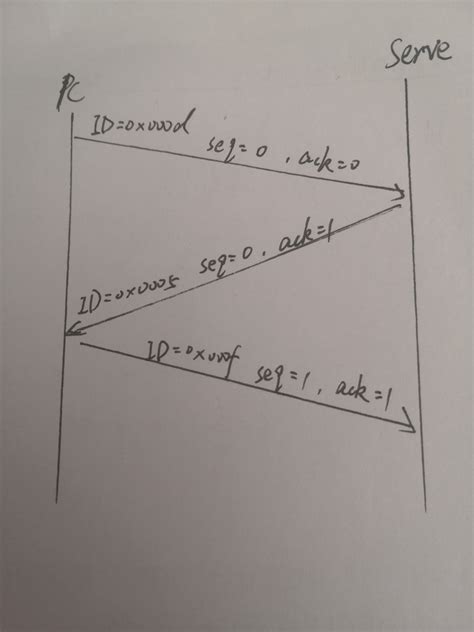 Serve
PC
ID=0x000d seq=0, ack=0
ID=0x0005 seq=0, ack=1
ID=0x000f seq=1, ack=1